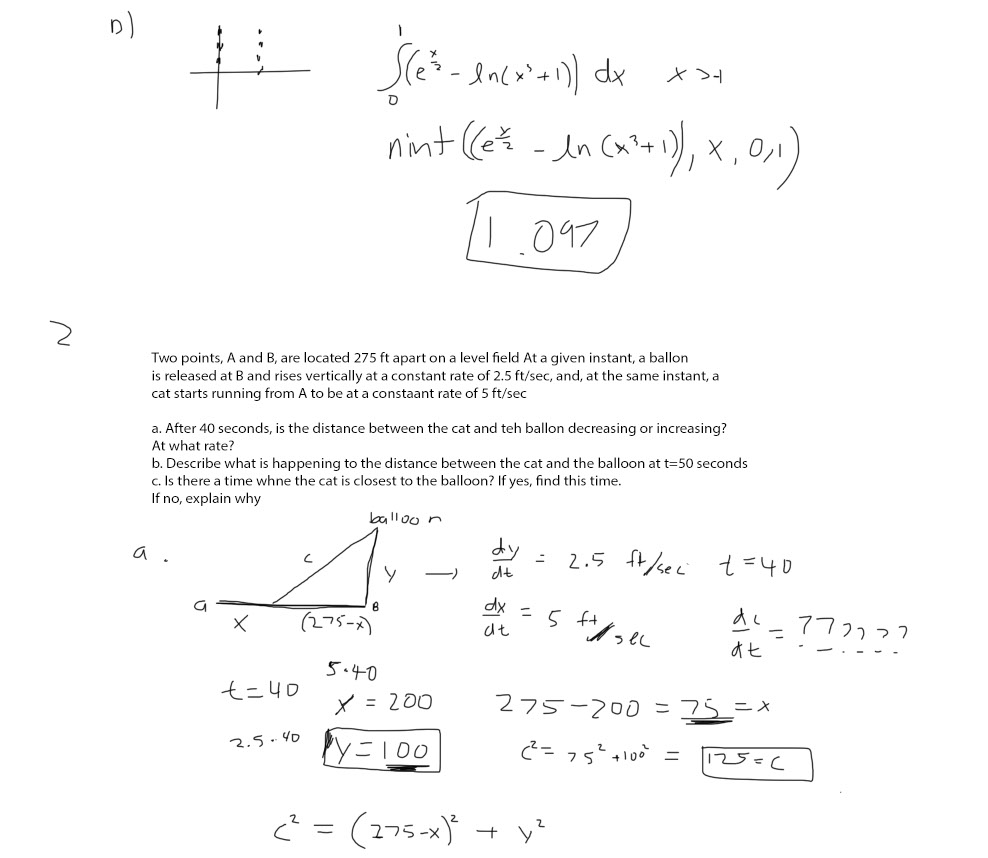 D)
∫₀¹ (e^(x/2) - ln(x³+1)) dx x>-1
nint((e^(x/2) - ln(x³+1)), x, 0,1)
1.097
2
Two points, A and B, are located 275 ft apart on a level field At a given instant, a ballon
is released at B and rises vertically at a constant rate of 2.5 ft/sec, and, at the same instant, a
cat starts running from A to be at a constaant rate of 5 ft/sec
a. After 40 seconds, is the distance between the cat and teh ballon decreasing or increasing?
At what rate?
b. Describe what is happening to the distance between the cat and the balloon at t=50 seconds
c. Is there a time whne the cat is closest to the balloon? If yes, find this time.
If no, explain why
balloon
a.
c
y → dy/dt = 2.5 ft/sec t=40
a B
x (275-x)
dx/dt = 5 ft/sec dc/dt = ??????
5·40
t=40 x = 200 275-200 = 75 = x
2.5·40 y=100 c² = 75² + 100² = 125=c
c² = (275-x)² + y²